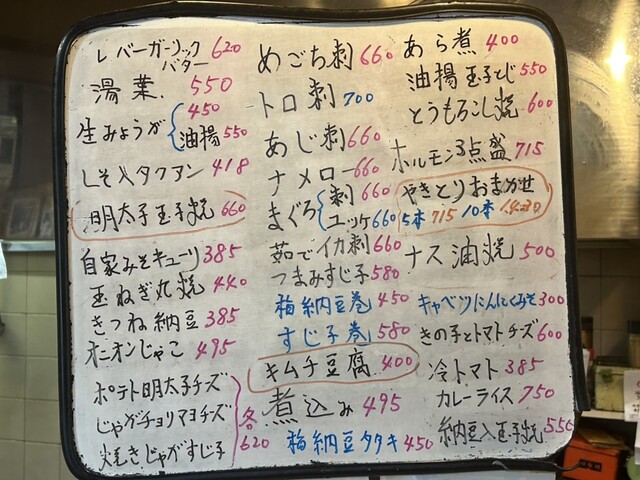 レバーガーリックバター 620
湯葉 550
生みょうが 450
油揚 550
しそ入タクアン 418
明太子玉子焼 660
自家みそキューリ 385
玉ねぎ丸焼 440
きつね納豆 385
オニオンじゃこ 495
ポテト明太子チーズ
じゃがチョリマヨチーズ
焼きじゃがすじ子
各620
めごち刺 660
トロ刺 700
あじ刺 660
ナメロー 660
まぐろ 刺 660
ユッケ 660
茹でイカ刺 660
つまみすじ子 580
梅納豆巻 450
すじ子巻 580
キムチ豆腐 400
煮込み 495
梅納豆タタキ 450
あら煮 400
油揚玉子とじ 550
とうもろこし焼 600
ホルモン3点盛 715
やきとりおまかせ
5本 715 10本 1430
ナス油焼 500
キャベツにんにくみそ 300
きの子とトマトチーズ 600
冷トマト 385
カレーライス 750
納豆入玉子焼 550